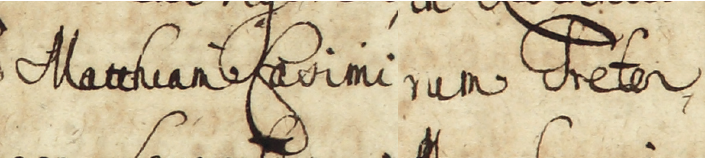 Matthiam Casimirum Treter,